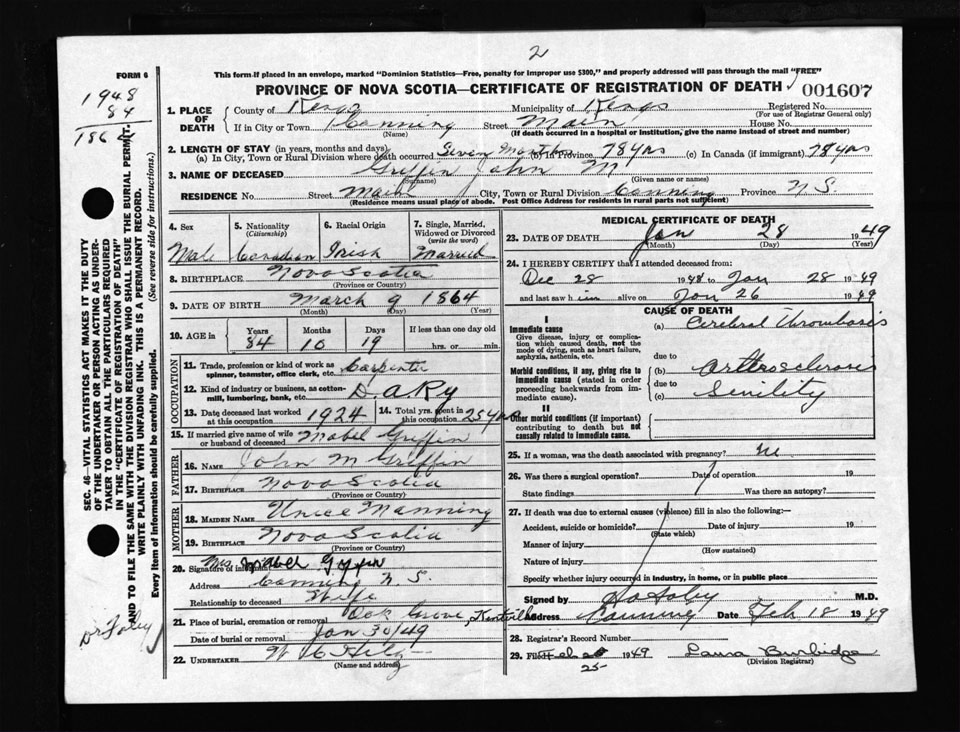 2
FORM 6
This form if placed in an envelope, marked "Dominion Statistics—Free, penalty for improper use $300," and properly addressed will pass through the mail "FREE"
PROVINCE OF NOVA SCOTIA—CERTIFICATE OF REGISTRATION OF DEATH 001607
1948
84
186
1. PLACE OF DEATH County of Kings Municipality of Kings Registered No.
(For use of Registrar General only)
If in City or Town Canning Street Main House No.
(Name) (If death occurred in a hospital or institution, give the name instead of street and number)
2. LENGTH OF STAY (in years, months and days)
(a) In City, Town or Rural Division where death occurred Seven Months (b) In Province 78 yrs (c) In Canada (if immigrant) 78 yrs
3. NAME OF DECEASED Griffin John M
(Surname) (Given name or names)
RESIDENCE No. Street Main City, Town or Rural Division Canning Province N S.
(Residence means usual place of abode. Post Office Address for residents in rural parts not sufficient)
4. Sex 5. Nationality (Citizenship) 6. Racial Origin 7. Single, Married, Widowed or Divorced (write the word)
Male Canadian Irish Married
8. BIRTHPLACE Nova Scotia
(Province or Country)
9. DATE OF BIRTH March 9 1864
(Month) (Day) (Year)
10. AGE in Years Months Days If less than one day old
84 10 19 hrs. or min.
OCCUPATION
11. Trade, profession or kind of work as spinner, teamster, office clerk, etc. Carpenter
12. Kind of industry or business, as cotton-mill, lumbering, bank, etc. D. A. Ry
13. Date deceased last worked at this occupation 1924 14. Total yrs. spent in this occupation 25 yrs
15. If married give name of wife or husband of deceased Mabel Griffin
FATHER
16. NAME John M Griffin
17. BIRTHPLACE Nova Scotia
(Province or Country)
MOTHER
18. MAIDEN NAME Unice Manning
19. BIRTHPLACE Nova Scotia
(Province or Country)
20. Signature of informant Mrs Mabel Griffin
Address Canning N. S.
Relationship to deceased Wife
21. Place of burial, cremation or removal Oak Grove, Kentville
Date of burial or removal Jan 30/49
22. UNDERTAKER
(Name and address)
MEDICAL CERTIFICATE OF DEATH
23. DATE OF DEATH Jan 28 1949
(Month) (Day) (Year)
24. I HEREBY CERTIFY that I attended deceased from:
Dec 28 1948 to Jan 28 1949
and last saw him alive on Jan 26 1949
CAUSE OF DEATH
I
Immediate cause (a) Cerebral Thrombosis
Give disease, injury or complication which caused death, not the mode of dying, such as heart failure, asphyxia, asthenia, etc.
due to
Morbid conditions, if any, giving rise to immediate cause (stated in order proceeding backwards from immediate cause).
(b) Arterosclerosis
due to
(c) Senility
II
Other morbid conditions (if important) contributing to death but not causally related to immediate cause.
25. If a woman, was the death associated with pregnancy?
26. Was there a surgical operation? Date of operation 19
State findings Was there an autopsy?
27. If death was due to external causes (violence) fill in also the following:—
Accident, suicide or homicide? Date of injury 19
(State which)
Manner of injury
(How sustained)
Nature of injury
Specify whether injury occurred in industry, in home, or in public place
Signed by Foley M.D.
Address Canning Date Feb 18 1949
28. Registrar's Record Number
29. Filed Feb 25 1949 Laura Burbidge
(Division Registrar)
SEC. 46—VITAL STATISTICS ACT MAKES IT THE DUTY
OF THE UNDERTAKER OR PERSON ACTING AS UNDER-
TAKER TO OBTAIN ALL THE PARTICULARS REQUIRED
IN THE "CERTIFICATE OF REGISTRATION OF DEATH"
AND TO FILE THE SAME WITH THE DIVISION REGISTRAR WHO SHALL ISSUE THE BURIAL PERMIT.
WRITE PLAINLY WITH UNFADING INK. THIS IS A PERMANENT RECORD.
Every item of information should be carefully supplied. (See reverse side for instructions.)
Dr Foley